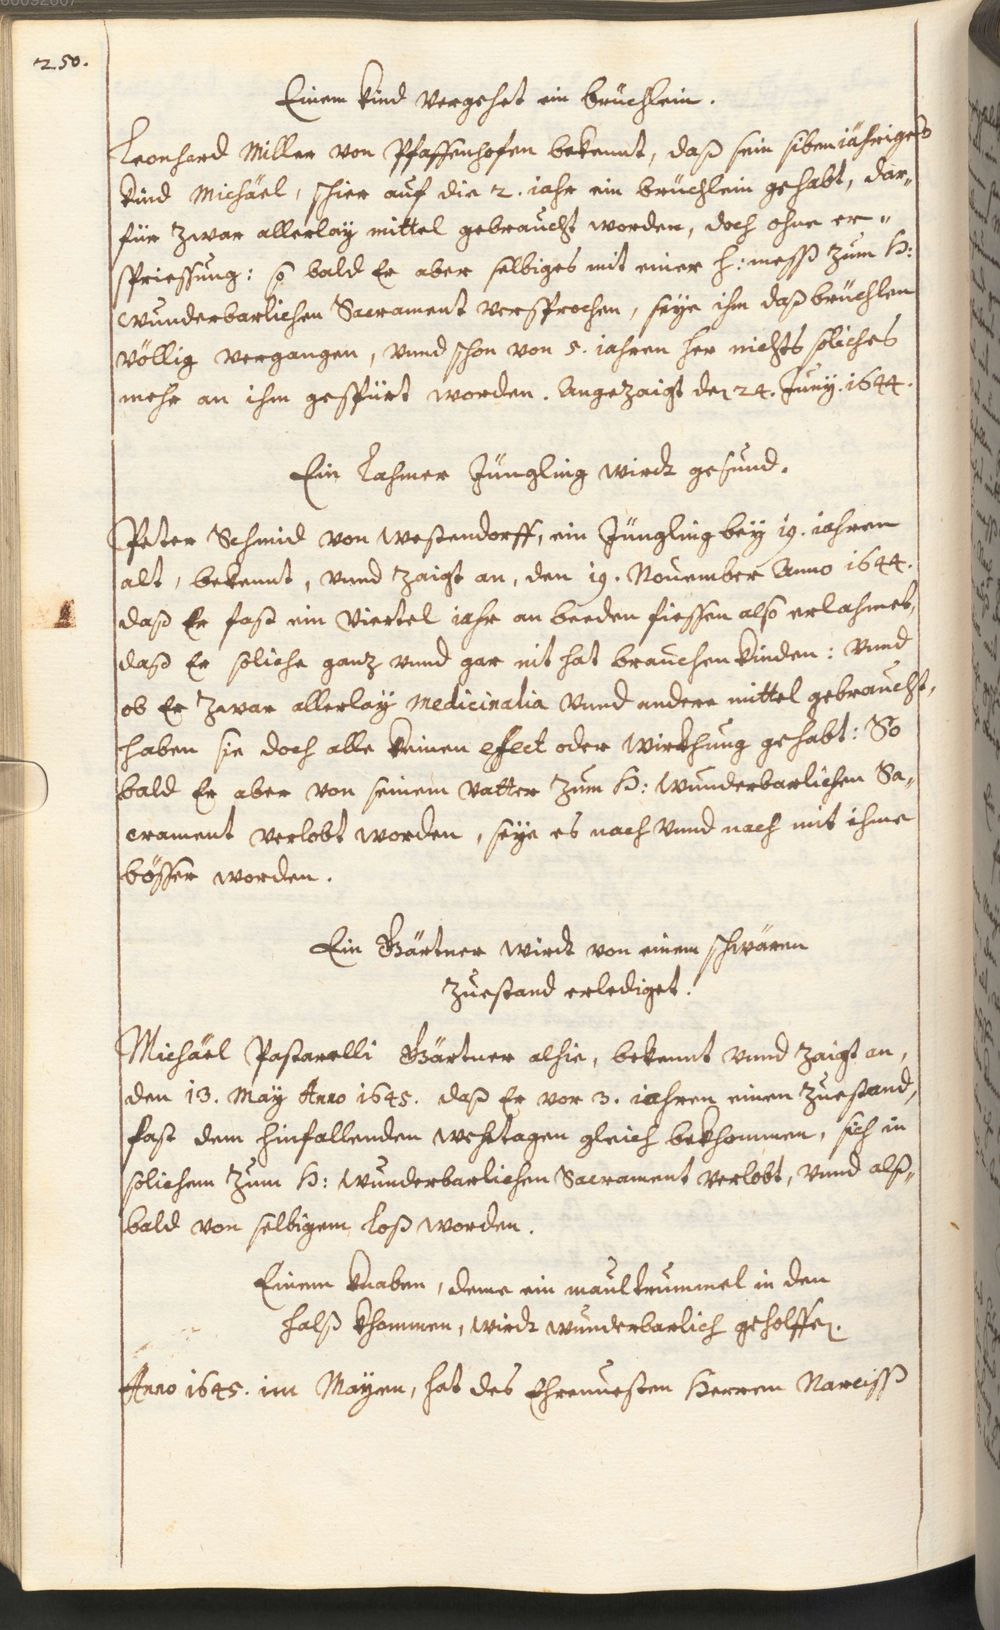 250.
Einem Kind vergehet ein brüchlein.
Leonhard Miller von Pfaffenhofen bekennt, daß sein sibeniährigeß
Kind Michäel, schier auf die 2. iahr ein brüchlein gehabt, dar„
für zwar allerlaÿ mittel gebraucht worden, doch ohne er„
spriessung: so bald Er aber selbiges mit einer H: mess zum H:
wunderbarlichen Sacrament versprochen, seÿe ihm daß brüchlen
völlig vergangen, vnnd schon von 5. iahren her nichts soliches
mehr an ihm gespürt worden. Angezaigt den 24. Junÿ. 1644.
Ein Lahmer Jüngling wirdt gesund.
Peter Schmid von Westendorff, ein Jüngling beÿ 19. iahren
alt, bekennt, vnnd zaigt an, den 19. Nouember Anno 1644.
daß Er fast ein Viertel iahr an beeden fiessen also erlahmet,
daß Er soliche ganz vnnd gar nit hat brauchen kinden: Vnnd
ob Er zwar allerlaÿ medicinalia vnnd andere mittel gebraucht,
haben sie doch alle keinen efect oder Wirkhung gehabt: So
bald Er aber von seinem Vatter zum H: Wunderbarlichen Sa„
crament verlobt worden, seÿe es nach vnnd nach mit ihme
bösser worden.
Ein Gärtner wirdt von einem schwären
Zuestand erlediget.
Michäel Pastarelli Gärtner alhie, bekennt vnnd zaigt an,
den 13. Maÿ Anno 1645. daß Er vor 3. iahren einen Zuestand,
fast dem hinfallenden wehetagen gleich bekhommen, sich in
solichem zum H: Wunderbarlichen Sacrament verlobt, vnnd alß„
bald von selbigem Loß worden.
Einem Knaben, deme ein maultrummel in den
Halß khommen, wirdt wunderbarlich geholffen.
Anno 1645. im Maÿen, hat des Ehrnuesten Herren Narciss